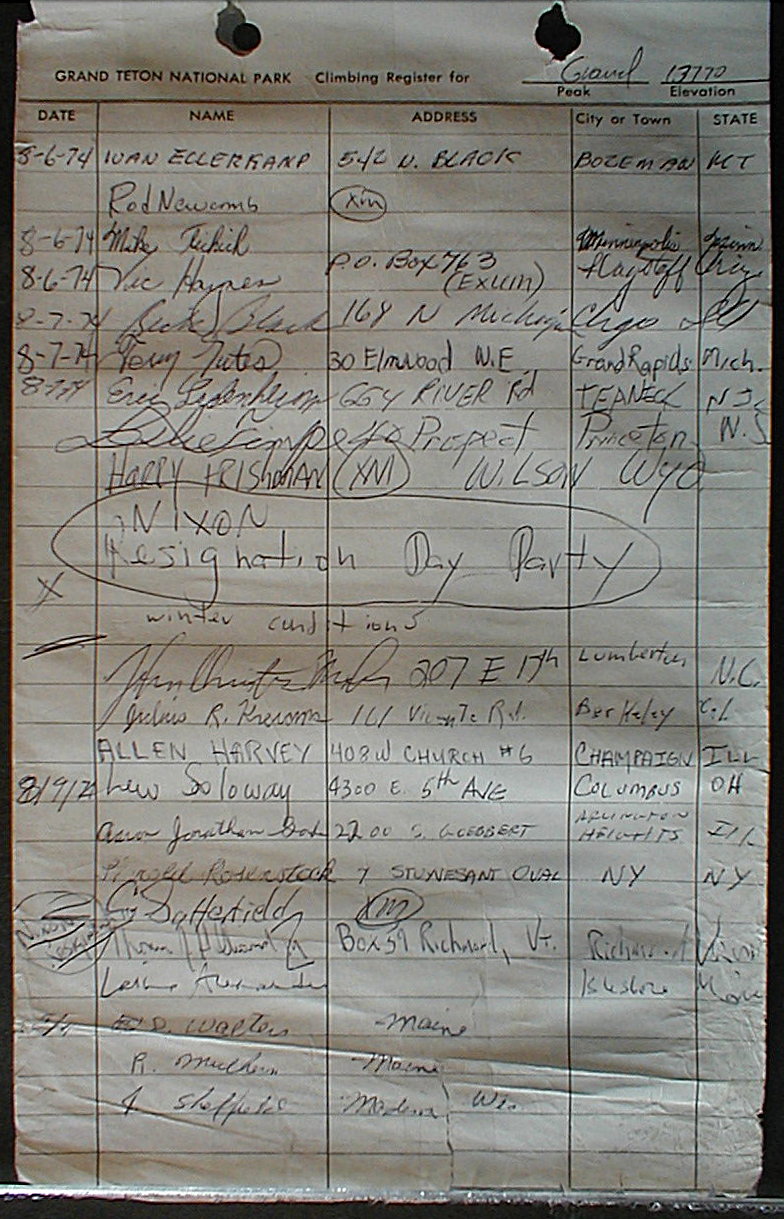 GRAND TETON NATIONAL PARK Climbing Register for Grand 13770
Peak Elevation
DATE NAME ADDRESS City or Town STATE
8-6-74 IVAN ELLERKAMP 542 N. BLACK BOZEMAN MT
Rod Newcomb XM
8-6-74 Mike Minneapolis Minn
8-6-74 Vic Haynes P.O. Box 763 (EXUM) flagstaff Ariz
8-7-74 Black 168 N Michigan Chgo Ill
8-7-74 Terry 30 Elmwood N.E. Grand Rapids Mich.
8-7-74 Eric 664 RIVER Rd TEANECK N.J.
40 Prospect Princeton N.J
HARRY FRISHMAN XM WILSON WYO
NIXON
Resignation Day Party
X
winter conditions
John 207 E 17th Lumberton N.C.
Julius R. 161 Vicente Rd. Berkeley Cal
ALLEN HARVEY 408 W CHURCH #6 CHAMPAIGN ILL
8/9/74 Lew Soloway 4300 E. 5th AVE COLUMBUS OH
Jonathan 2200 S. GOEBBERT ARLINGTON HEIGHTS Ill
Rosenstock 7 STUYVESANT OVAL NY NY
Satterfield XM
Nixon Resigns Thomas Box 59 Richmond, Vt. Richmond
Alexander
Ed D. Walters Maine
R. Maine
Sheffield Wis